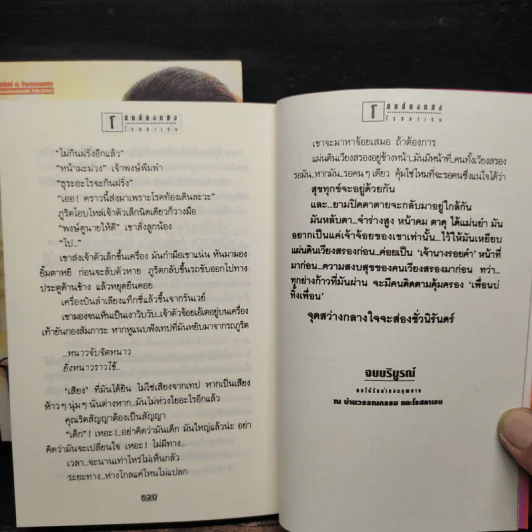 “ไม่กินฝรั่งอีกแล้ว”
“หน้ามะม่วง” เจ้าพงษ์พึมพำ
“ธุระอะไรจะกินฝรั่ง”
“เออ! คราวนี้ส่งมาเพราะโรคท้องเดินละวะ”
ภูริตโอบไหล่เจ้าตัวเล็กนิดเดียวก็วางมือ
“พงษ์ดูนายให้ดี” เขาสั่งลูกน้อง
“ไป...”
เขาส่งเจ้าตัวเล็กขึ้นเครื่อง มันกำมือเขาแน่น หันมามอง
ยิ้มตาหยี ก่อนจะลับตัวหาย ภูริตกลับขึ้นรถขับออกไปทาง
ประตูด้านข้าง แล้วหยุดยืนคอย
เครื่องบินลำเลียงแท็กซี่แล้วขึ้นจากรันเวย์
เขามองจนเห็นเป็นเงาวิบวับ..เจ้าตัวจ้อยเอ้เตอยู่บนเครื่อง
เท้ายันกองสัมภาระ หากหูแนบฟังเทปที่มันหยิบมาจากรถภูริต
...หนาวจับจิตหนาว
ยิ่งหนาวราวไข้...
‘เสียง’ ที่มันได้ยิน ไม่ใช่เสียงจากเทป หากเป็นเสียง
ห้าวๆ นุ่มๆ นั่นต่างหาก..มันไม่ห่วงใยอะไรอีกแล้ว
คุณริตสัญญาต้องเป็นสัญญา
“เด็ก”! เหอะ!..อย่าคิดว่ามันเด็ก มันใหญ่แล้วน่ะ อย่า
คิดว่ามันจะเปลี่ยนใจ เหอะ! ไม่มีทาง...
เวลา...จะนานเท่าไหร่ไม่เห็นกลัว
ระยะทาง...ห่างไกลแค่ไหนไม่แปลก
520
เขาจะมาหาจ้อยเสมอ ถ้าต้องการ
แผ่นดินเวียงสรองอยู่ข้างหน้า..มันมีหน้าที่..คนทั้งเวียงสรอง
รอมัน..หากมัน..รอคน ๆ เดียว คุ้มใช่ไหมที่จะรอคนซึ่งแน่ใจได้ว่า
สุขทุกข์จะอยู่ด้วยกัน
และ...ยามปิดตาตายจะกลับมาอยู่ใกล้กัน
มันหลับตา..จำร่างสูง หน้าคม ตาดุ ได้แม่นยำ มัน
อยากเป็นแค่เจ้าจ้อยของเขาเท่านั้น...ไว้ให้มันเหยียบ
แผ่นดินเวียงสรองก่อน..ค่อยเป็น ‘เจ้านางรอยคำ’ หน้าที่
มาก่อน...ความสงบสุขของคนเวียงสรองมาก่อน ทว่า..
ทุกย่างก้าวที่มันผ่าน จะมีคนติดตามคุ้มครอง ‘เพื่อนบ่
ทิ้งเพื่อน’
จุดสว่างกลางใจจะส่องชั่วนิรันดร์
จบบริบูรณ์
ณ บ้านวรรณกรรม และโรสลาเรน